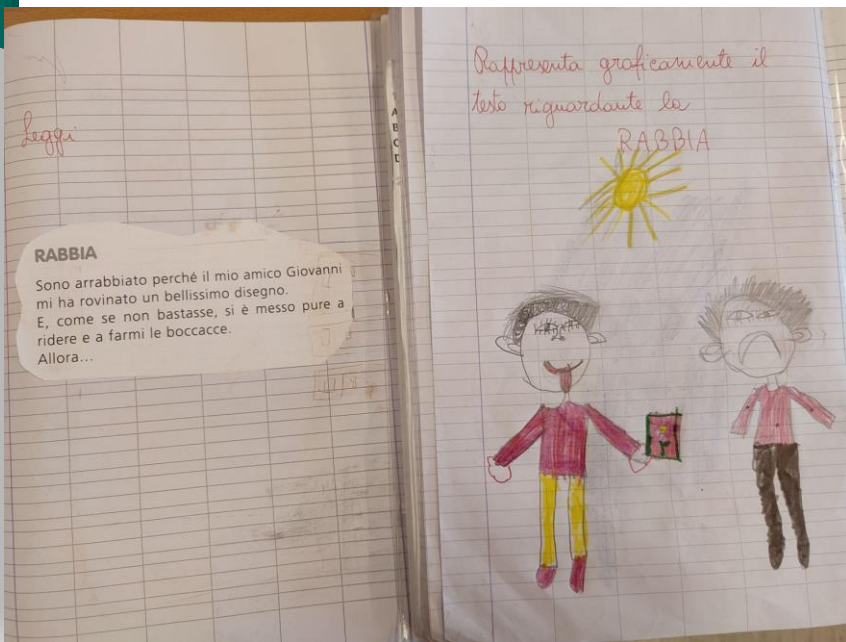 Leggi
RABBIA
Sono arrabbiato perché il mio amico Giovanni
mi ha rovinato un bellissimo disegno.
E, come se non bastasse, si è messo pure a
ridere e a farmi le boccacce.
Allora...
A
B
C
D
Rappresenta graficamente il
testo riguardante la
RABBIA